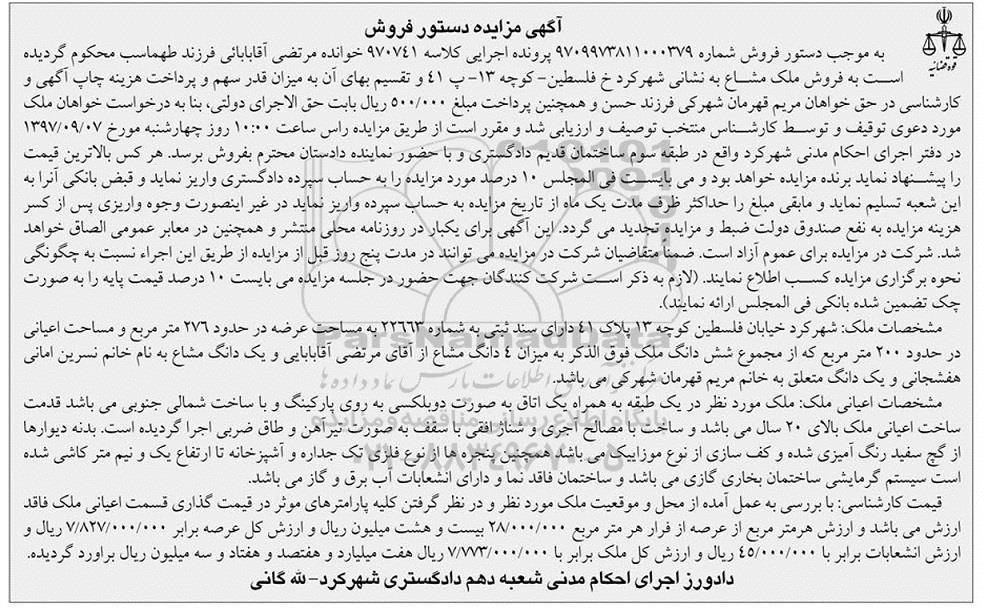 آگهی مزایده دستور فروش
قوه قضائیه
به موجب دستور فروش شماره ۹۷۰۹۹۷۳۸۱۱۰۰۰۳۷۹ پرونده اجرایی کلاسه ۹۷۰۷۴۱ خوانده مرتضی آقابابائی فرزند طهماسب محکوم گردیده
است به فروش ملک مشاع به نشانی شهرکرد خ فلسطین- کوچه ۱۳- پ ۴۱ و تقسیم بهای آن به میزان قدر سهم و پرداخت هزینه چاپ آگهی و
کارشناسی در حق خواهان مریم قهرمان شهرکی فرزند حسن و همچنین پرداخت مبلغ ۵۰۰/۰۰۰ ریال بابت حق الاجرای دولتی، بنا به درخواست خواهان ملک
مورد دعوی توقیف و توسط کارشناس منتخب توصیف و ارزیابی شد و مقرر است از طریق مزایده راس ساعت ۱۰:۰۰ روز چهارشنبه مورخ ۱۳۹۷/۰۹/۰۷
در دفتر اجرای احکام مدنی شهرکرد واقع در طبقه سوم ساختمان قدیم دادگستری و با حضور نماینده دادستان محترم بفروش برسد. هر کس بالاترین قیمت
را پیشنهاد نماید برنده مزایده خواهد بود و می بایست فی المجلس ۱۰ درصد مورد مزایده را به حساب سپرده دادگستری واریز نماید و قبض بانکی آنرا به
این شعبه تسلیم نماید و مابقی مبلغ را حداکثر ظرف مدت یک ماه از تاریخ مزایده به حساب سپرده واریز نماید در غیر اینصورت وجوه واریزی پس از کسر
هزینه مزایده به نفع صندوق دولت ضبط و مزایده تجدید می گردد. این آگهی برای یکبار در روزنامه محلی منتشر و همچنین در معابر عمومی الصاق خواهد
شد. شرکت در مزایده برای عموم آزاد است. ضمناً متقاضیان شرکت در مزایده می توانند در مدت پنج روز قبل از مزایده از طریق این اجراء نسبت به چگونگی
نحوه برگزاری مزایده کسب اطلاع نمایند. (لازم به ذکر است شرکت کنندگان جهت حضور در جلسه مزایده می بایست ۱۰ درصد قیمت پایه را به صورت
چک تضمین شده بانکی فی المجلس ارائه نمایند).
مشخصات ملک: شهرکرد خیابان فلسطین کوچه ۱۳ پلاک ۴۱ دارای سند ثبتی به شماره ۲۲۶۶۳ به مساحت عرصه در حدود ۲۷۶ متر مربع و مساحت اعیانی
در حدود ۲۰۰ متر مربع که از مجموع شش دانگ ملک فوق الذکر به میزان ۴ دانگ مشاع از آقای مرتضی آقابابایی و یک دانگ مشاع به نام خانم نسرین امانی
هفشجانی و یک دانگ متعلق به خانم مریم قهرمان شهرکی می باشد.
مشخصات اعیانی ملک: ملک مورد نظر در یک طبقه به همراه یک اتاق به صورت دوبلکسی به روی پارکینگ و با ساخت شمالی جنوبی می باشد قدمت
ساخت اعیانی ملک بالای ۲۰ سال می باشد و ساخت با مصالح آجری و شناژ افقی با سقف به صورت تیرآهن و طاق ضربی اجرا گردیده است. بدنه دیوارها
از گچ سفید رنگ آمیزی شده و کف سازی از نوع موزاییک می باشد همچنین پنجره ها از نوع فلزی تک جداره و آشپزخانه تا ارتفاع یک و نیم متر کاشی شده
است سیستم گرمایشی ساختمان بخاری گازی می باشد و ساختمان فاقد نما و دارای انشعابات آب برق و گاز می باشد.
قیمت کارشناسی: با بررسی به عمل آمده از محل و موقعیت ملک مورد نظر و در نظر گرفتن کلیه پارامترهای موثر در قیمت گذاری قسمت اعیانی ملک فاقد
ارزش می باشد و ارزش هرمتر مربع از عرصه از قرار هر متر مربع ۲۸/۰۰۰/۰۰۰ بیست و هشت میلیون ریال و ارزش کل عرصه برابر ۷/۸۲۷/۰۰۰/۰۰۰ ریال و
ارزش انشعابات برابر با ۴۵/۰۰۰/۰۰۰ ریال و ارزش کل ملک برابر با ۷/۷۷۳/۰۰۰/۰۰۰ ریال هفت میلیارد و هفتصد و هفتاد و سه میلیون ریال براورد گردیده.
دادورز اجرای احکام مدنی شعبه دهم دادگستری شهرکرد- لله گانی
ParsNamadData
پایگاه اطلاع رسانی مناقصه و مزایده
۰۲۱-۸۸۳۴۹۶۷۰-۵